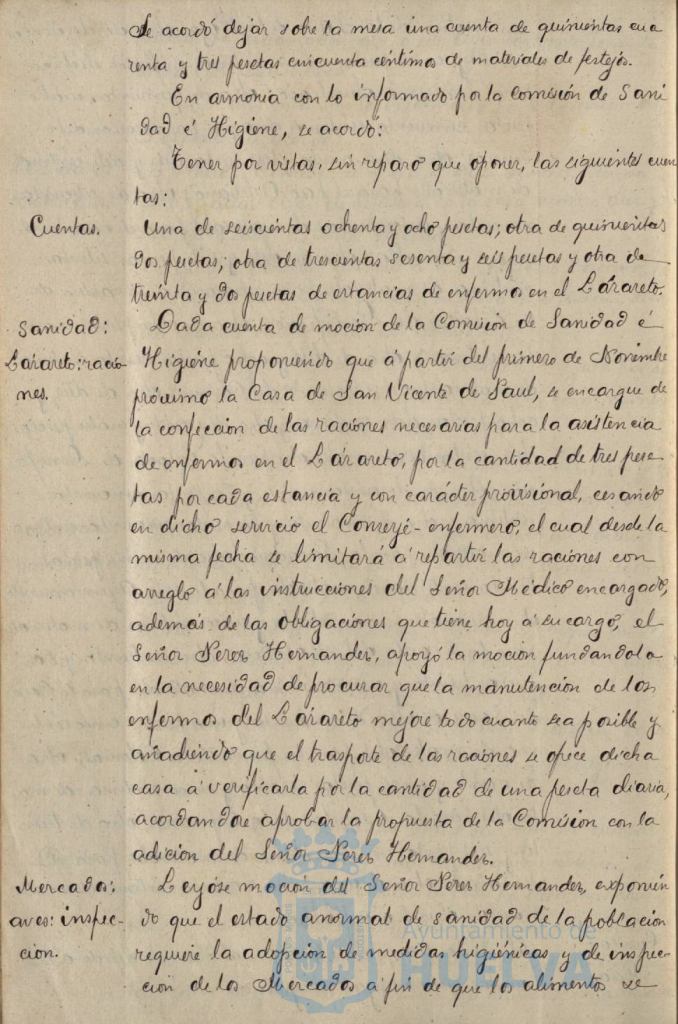 Se acordó dejar sobre la mesa una cuenta de quinientas cua
renta y tres pesetas cincuenta céntimos de materiales de festejos.
En armonía con lo informado por la Comisión de Sani
dad é Higiene, se acordó:
Tener por vistas, sin reparo que oponer, las siguientes cuen
tas:
Cuentas.
Una de seiscientas ochenta y ocho pesetas; otra de quinientas
dos pesetas; otra de trescientas sesenta y seis pesetas y otra de
treinta y dos pesetas de estancias de enfermos en el Lazareto.
Sanidad:
Lazareto: racio-
nes.
Dada cuenta de moción de la Comisión de Sanidad é
Higiene proponiendo que á partir del primero de Noviembre
próximo la Casa de San Vicente de Paul, se encargue de
la confección de las raciones necesarias para la asistencia
de enfermos en el Lazareto, por la cantidad de tres pese
tas por cada estancia y con carácter provisional, cesando
en dicho servicio el Conserje-enfermero, el cual desde la
misma fecha se limitará á repartir las raciones con
arreglo á las instrucciones del Señor Médico encargado,
además de las obligaciones que tiene hoy á su cargo, el
Señor Perez Hernandez, apoyó la moción fundandola
en la necesidad de procurar que la manutención de los
enfermos del Lazareto mejore todo cuanto sea posible y
añadiendo que el trasporte de las raciones se ofrece dicha
casa á verificarla por la cantidad de una peseta diaria,
acordandose aprobar la propuesta de la Comisión con la
adición del Señor Perez Hernandez.
Mercados:
aves: inspec-
cion.
Leyóse moción del Señor Perez Hernandez, exponien
do que el estado anormal de sanidad de la población
requiere la adopción de medidas higiénicas y de inspec-
ción de los Mercados á fin de que los alimentos se
Ayuntamiento de
HUELVA